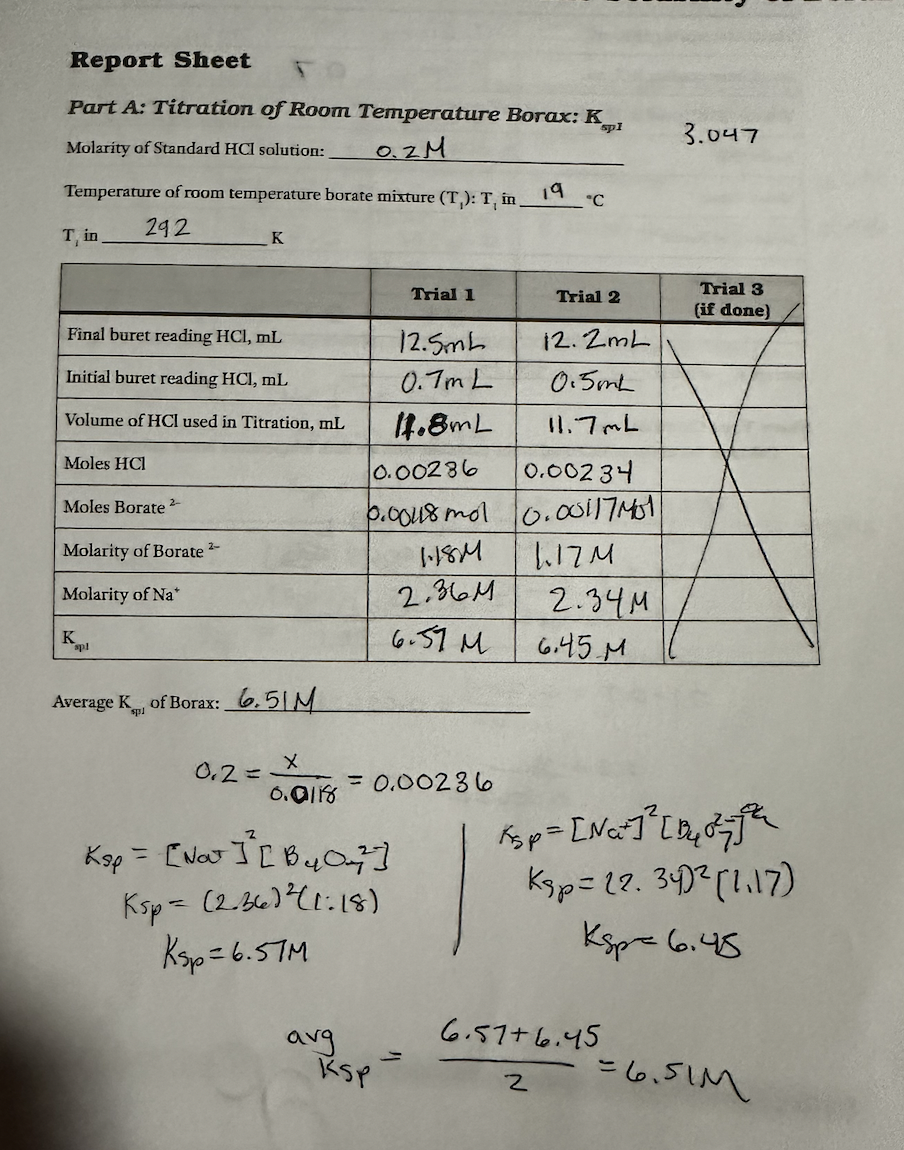 Report Sheet
Part A: Titration of Room Temperature Borax: K sp1
3.047
Molarity of Standard HCl solution: 0.2M
Temperature of room temperature borate mixture (T₁): T₁ in 19 °C
T₁ in 292 K
Trial 1 Trial 2 Trial 3 (if done)
Final buret reading HCl, mL 12.5mL 12.2mL
Initial buret reading HCl, mL 0.7mL 0.5mL
Volume of HCl used in Titration, mL 11.8mL 11.7mL
Moles HCl 0.00236 0.00234
Moles Borate ²⁻ 0.00118 mol 0.00117mol
Molarity of Borate ²⁻ 1.18M 1.17M
Molarity of Na⁺ 2.36M 2.34M
K sp1 6.57 M 6.45 M
Average K sp1 of Borax: 6.51M
0.2 = x / 0.0118 = 0.00236
Ksp = [Na+]² [B₄O₇²⁻]
Ksp = (2.36)²(1.18)
Ksp = 6.57M
Ksp = [Na+]² [B₄O₇²⁻]
Ksp = (2.34)² (1.17)
Ksp = 6.45
avg Ksp = 6.57 + 6.45 / 2 = 6.51M